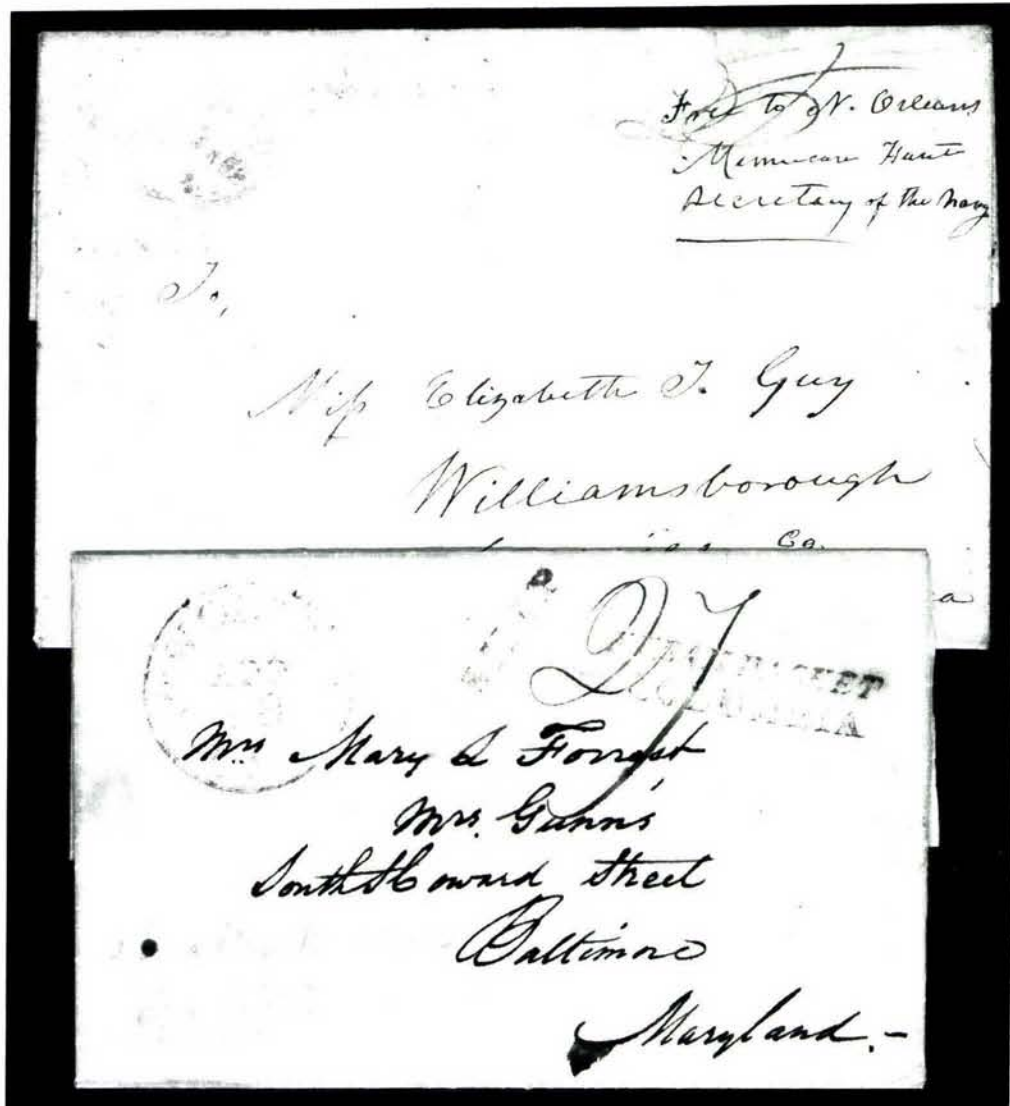 Free to N. Orleans
Memucan Hunt
Secretary of the Navy
To,
Miss Elizabeth T. Guy
Williamsborough
Co.
a
27
STEAM PACKET
COLUMBIA
Mrs Mary S Forrest
Mrs. Gunn's
South Howard Street
Baltimore
Maryland.-